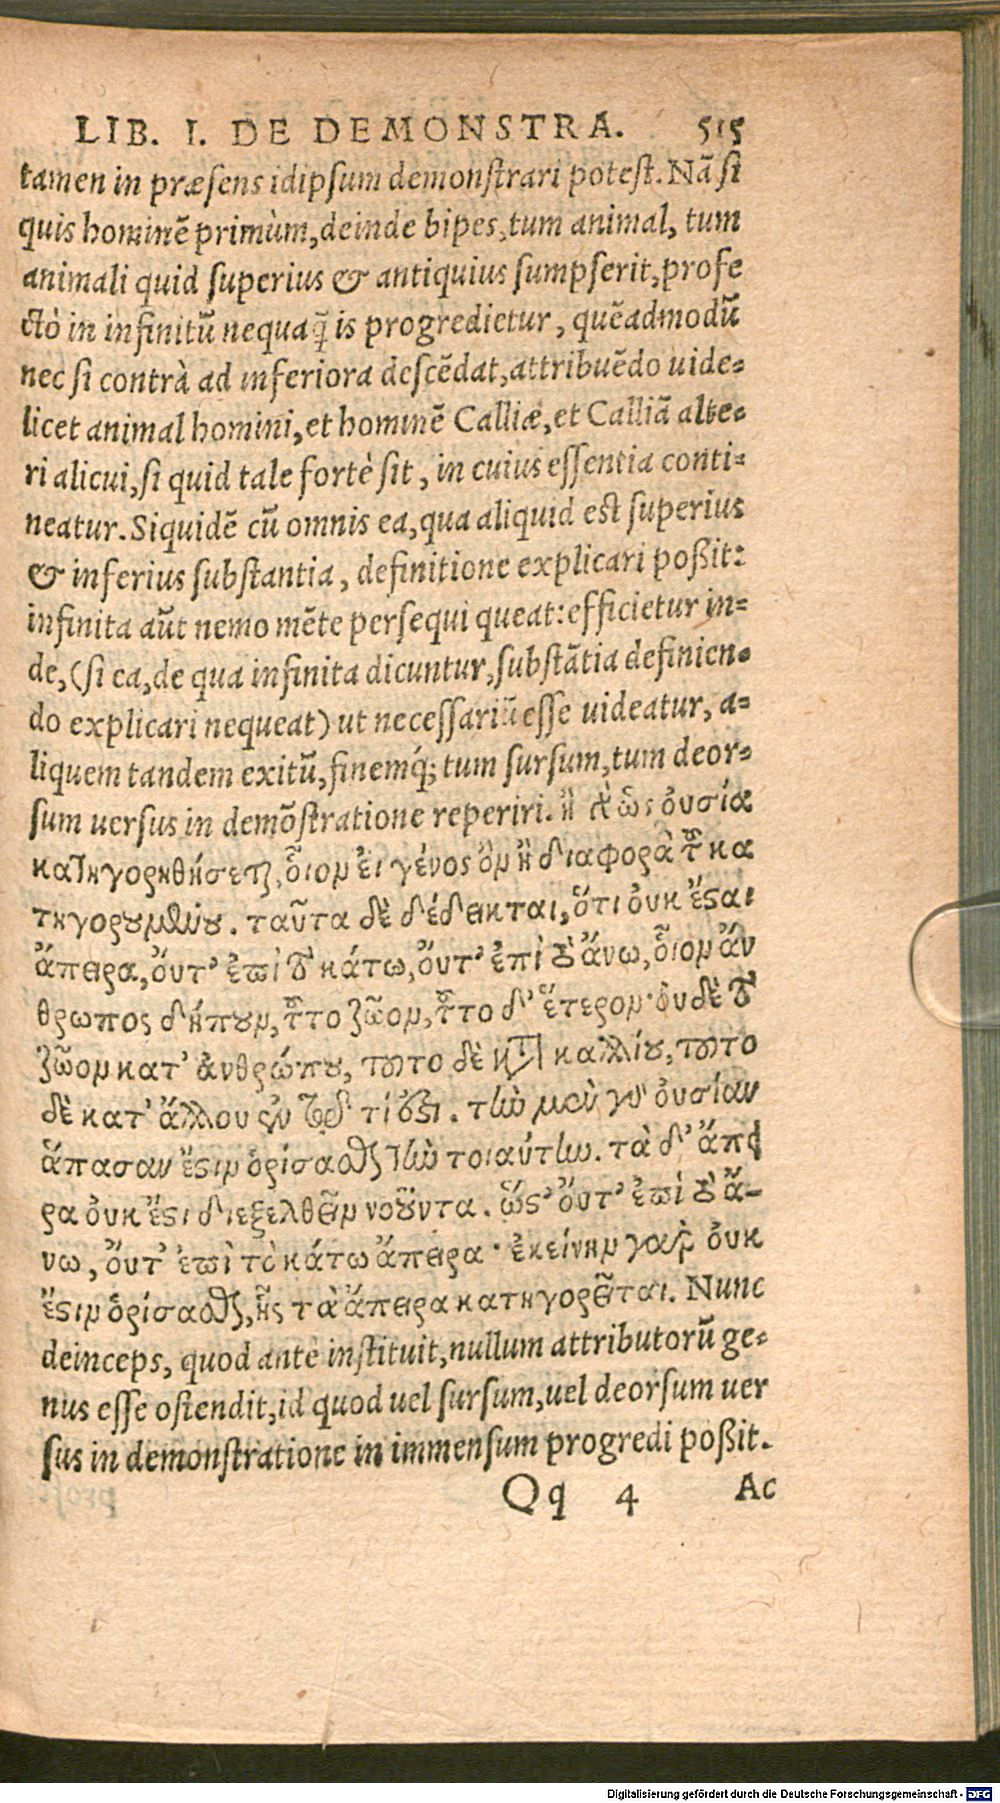 LIB. I. DE DEMONSTRA. 515
tamen in præsens idipsum demonstrari potest. Nā si
quis hominē primùm, deinde bipes, tum animal, tum
animali quid superius & antiquius sumpserit, profe
ctò in infinitū nequaq̃ is progredietur, quēadmodū
nec si contrà ad inferiora descēdat, attribuēdo uide-
licet animal homini, et hominē Calliæ, et Calliā alte-
ri alicui, si quid tale fortè sit, in cuius essentia conti-
neatur. Siquidē cū omnis ea, qua aliquid est superius
& inferius substantia, definitione explicari poßit:
infinita aūt nemo mēte persequi queat: efficietur in-
de, (si ea, de qua infinita dicuntur, substātia definien-
do explicari nequeat) ut necessariū esse uideatur, a-
liquem tandem exitū, finemq́; tum sursum, tum deor-
sum uersus in demōstratione reperiri. ἢ ὡς οὐσία
κατηγορηθήσεται, οἷον εἰ γένος ὂν ἢ διαφορὰ τοῦ κα
τηγορουμένου. ταῦτα δὲ δέδεικται, ὅτι οὐκ ἔσαι
ἄπειρα, οὔτ' ἐπὶ τὸ κάτω, οὔτ' ἐπὶ τὸ ἄνω, οἷον ἄν
θρωπος δίπουν, τοῦτο ζῶον, τοῦτο δ' ἕτερον· οὐδὲ τὸ
ζῶον κατ' ἀνθρώπου, τοῦτο δὲ κατὰ καλλίου, τοῦτο
δὲ κατ' ἄλλου ἐν τῷ τί ἐστι. τὴν μὲν γὰρ οὐσίαν
ἅπασαν ἔστιν ὁρίσασθαι τὴν τοιαύτην. τὰ δ' ἄπει
ρα οὐκ ἔστι διεξελθεῖν νοοῦντα. ὥστ' οὔτ' ἐπὶ τὸ ἄ-
νω, οὔτ' ἐπὶ τὸ κάτω ἄπειρα· ἐκείνην γὰρ οὐκ
ἔστιν ὁρίσασθαι, ἧς τὰ ἄπειρα κατηγορεῖται. Nunc
deinceps, quod antè instituit, nullum attributorū ge-
nus esse ostendit, id quod uel sursum, uel deorsum uer
sus in demonstratione in immensum progredi poßit.
Qq 4 Ac
Digitalisierung gefördert durch die Deutsche Forschungsgemeinschaft - DFG